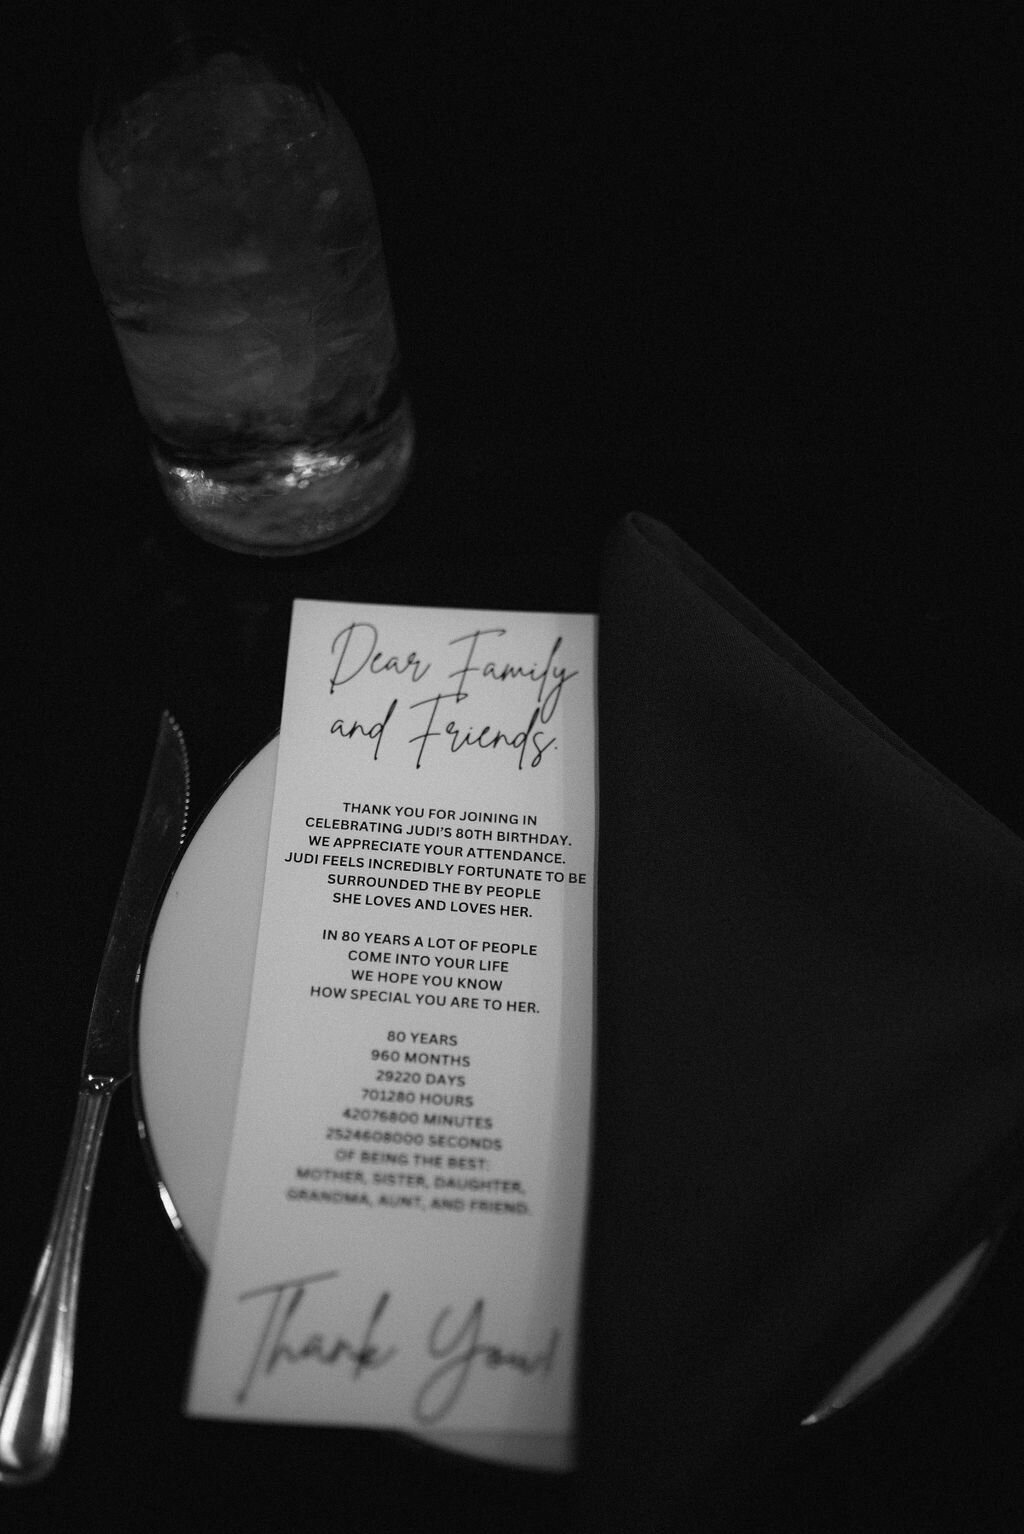 Dear Family
and Friends.
THANK YOU FOR JOINING IN
CELEBRATING JUDI'S 80TH BIRTHDAY.
WE APPRECIATE YOUR ATTENDANCE.
JUDI FEELS INCREDIBLY FORTUNATE TO BE
SURROUNDED THE BY PEOPLE
SHE LOVES AND LOVES HER.
IN 80 YEARS A LOT OF PEOPLE
COME INTO YOUR LIFE
WE HOPE YOU KNOW
HOW SPECIAL YOU ARE TO HER.
80 YEARS
960 MONTHS
29220 DAYS
701280 HOURS
42076800 MINUTES
2524608000 SECONDS
OF BEING THE BEST:
MOTHER, SISTER, DAUGHTER,
GRANDMA, AUNT, AND FRIEND.
Thank You!